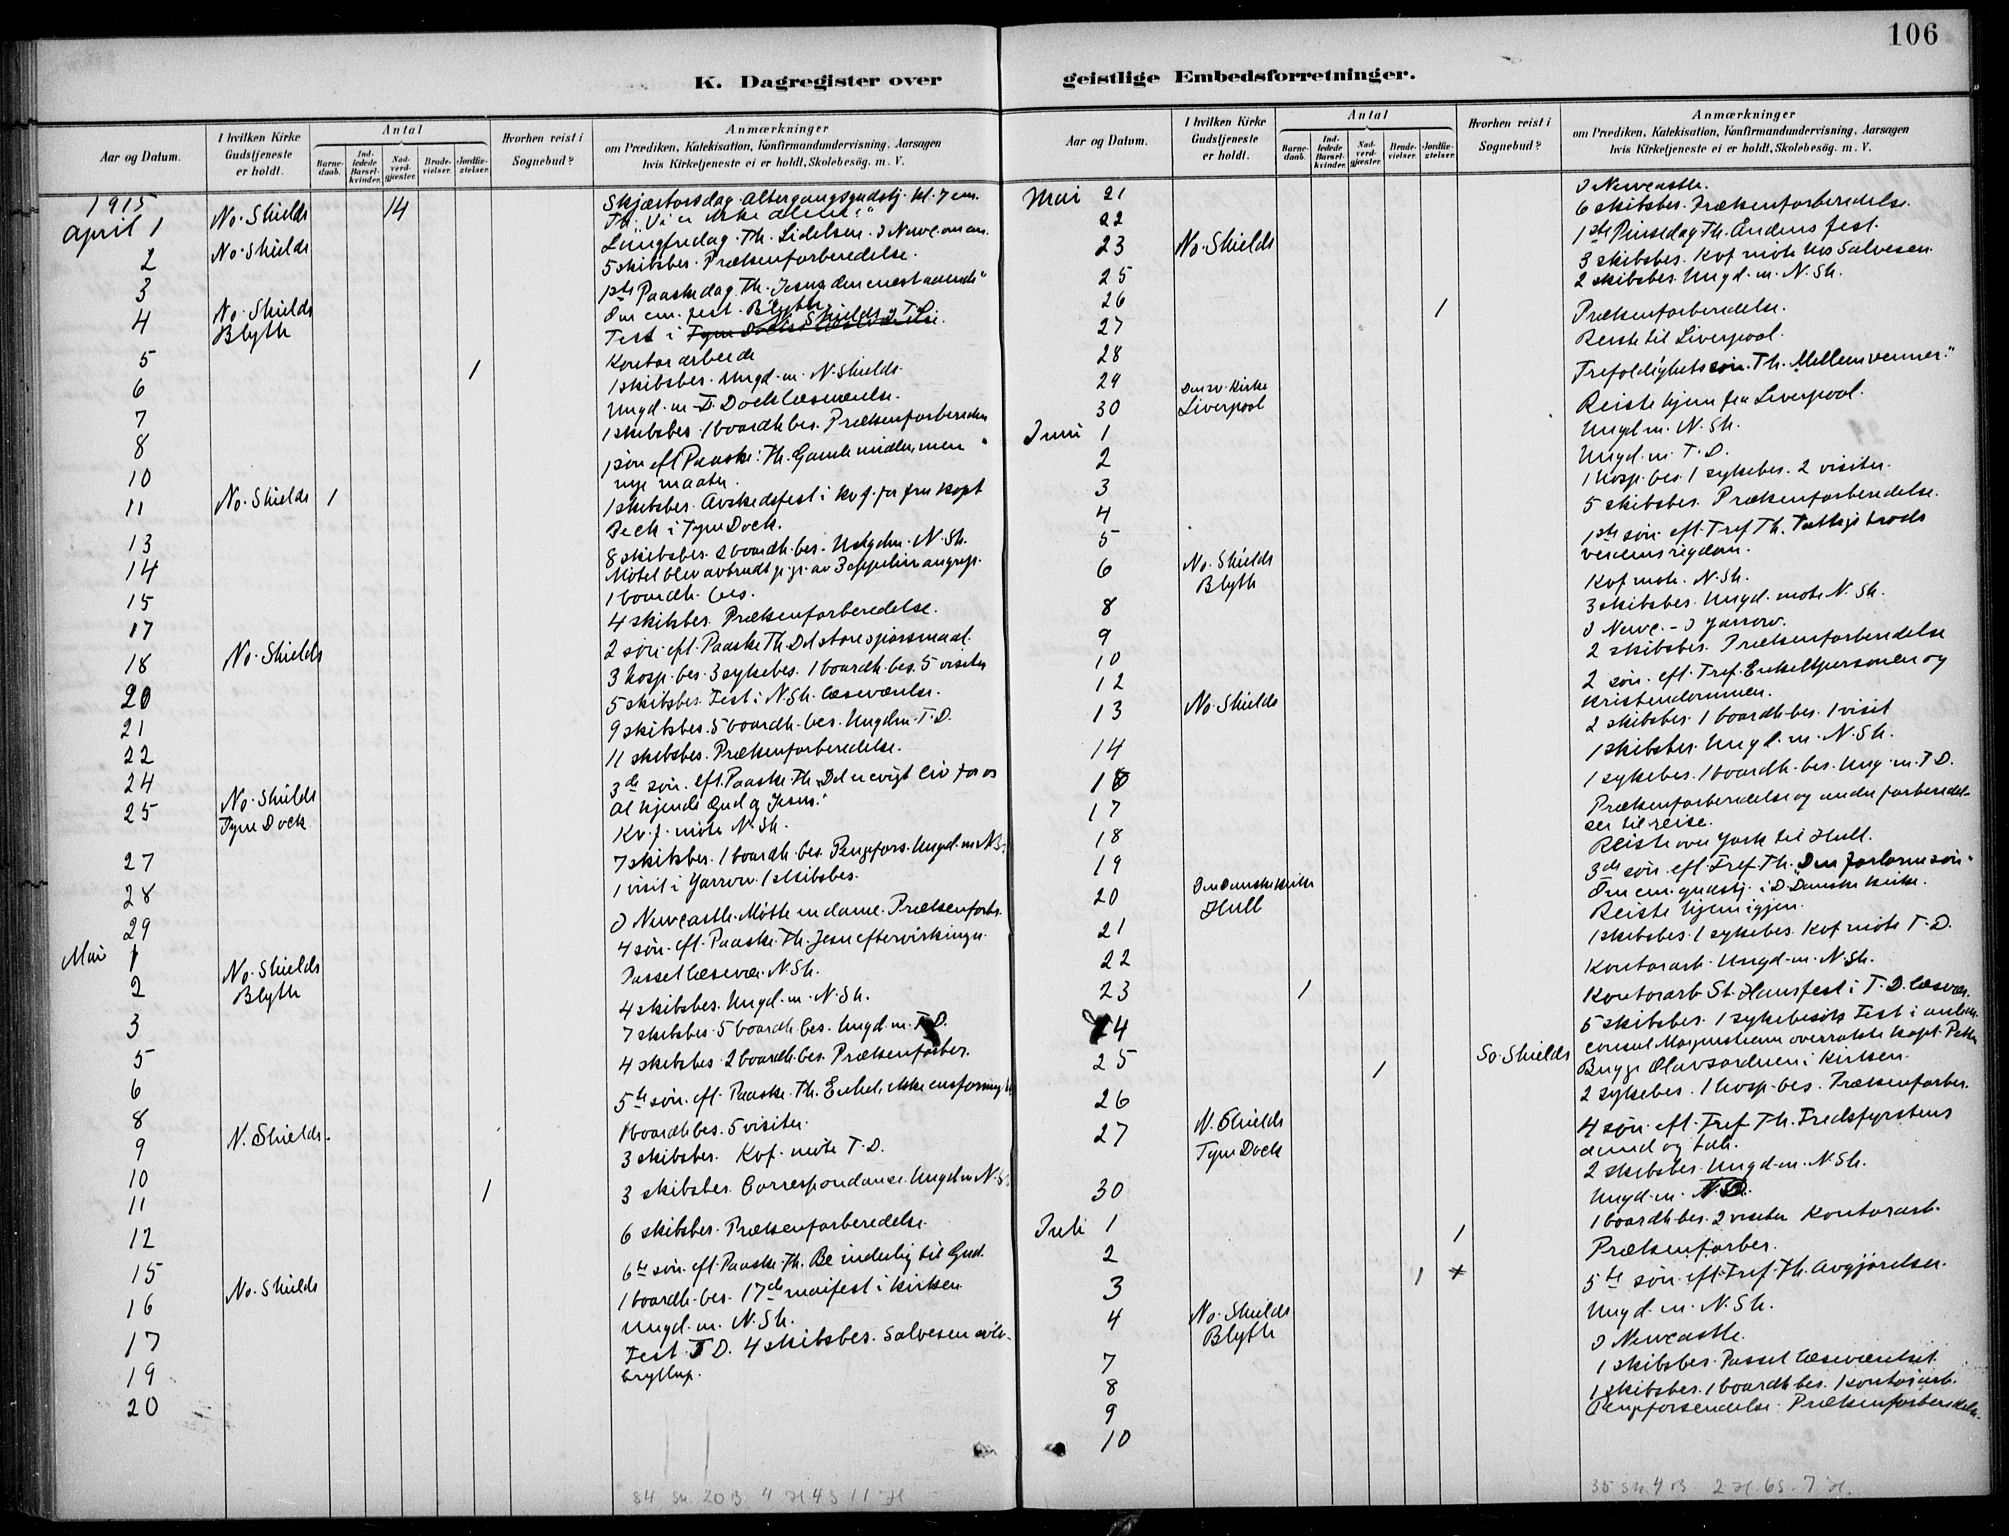 106
K. Dagregister over
geistlige Embedsforretninger.
Aar og Datum.
I hvilken Kirke
Gudstjeneste
er holdt.
Antal
Barne-
daab.
Ind-
ledede
Barsel-
kvinder.
Nad-
verd-
gjæster.
Brude-
vielser.
Jordfæ-
stelser.
Hvorhen reist i
Sognebud?
Anmærkninger
om Prædiken, Katekisation, Konfirmandundervisning, Aarsagen
hvis Kirketjeneste ei er holdt, Skolebesög. m. V.
1915
April 1 No. Shields 14 Skjærtorsdag Altergangsgudstj. kl. 7 em.
Th. "Vi er ikke alene."
2 No. Shields Langfredag. Th. Lidelsen. I Newc. om em.
3 5 skibsbes. Prækenforberedelse.
4 No. Shields 1ste Paaskedag Th. Jesus den enestaaende"
Blyth Om em. fest. Blyth
5 Fest i N. Shields T.D.
6 1 Kontorarbeide
7 1 skibsbes. Ungd. m. N. Shields.
8 Ungd. m. T. Dock læseværelse.
10 1 skibsbes. 1 boardh. bes. Prækenforbereden
11 No. Shields 1 1 søn. eft. Paaske: Th. Gamle midler men
nye maater.
13 1 skibsbes. Avskedsfest i kv.f. for fru kapt
Beck i Tyne Dock.
14 8 skibsbes. 2 boardh. bes. Ungdm. N. Sh.
Møtet blev avbrudt p. gr. av Zeppelinangrep.
15 1 boardh. bes.
17 4 skibsbes. Prækenforberedelse.
18 No. Shields 2 søn. eft. Paaske Th. Det store spørsmaal.
20 3 hosp. bes. 3 sykebes. 1 boardh. bes. 5 visiter
21 5 skibsbes. Fest i N. Sh. læseværelse.
22 9 skibsbes. 5 boardh. bes. Ungdm. T.D.
24 11 skibsbes. Prækenforberedelse.
25 No. Shields 3de søn. eft. Paaske Th. "Det er evigt liv for os
Tyne Dock at kjende Gud og Jesus."
27 Kv. f. møte N. Sh.
28 7 skibsbes. 1 boardh. bes. Pengefors. Ungd. m N.S.
29 1 visit i Yarrow. 1 skibsbes.
Mai 1 I Newcastle. Møtte en dame. Prækenforb.
2 No. Shields 4 søn. eft. Paaske. Th. Jesu eftervirkninger.
Blyth
3 Passet læsevær. N. Sh.
5 4 skibsbes. Ungd. m. N. Sh.
6 7 skibsbes. 5 boardh. bes. Ungd. m. T.D.
8 4 skibsbes. 2 boardh. bes. Prækenforber.
9 N. Shields. 5te søn. eft. Paaske. Th. Enkel, ikke ensformig
10 1 boardh. bes. 5 visiter.
11 1 3 skibsbes. Kvf. møte T.D.
12 3 skibsbes. Correspondance. Ungd m N.S.
15 6 skibsbes. Prækenforberedelse.
16 No. Shields 6te søn. eft. Paaske. Th. Be inderlig til Gud.
17 1 boardh. bes. 17de maifest i kirken
19 Ungd. m. N. Sh.
20 Fest T.D. 4 skibsbes. Salvesen sølv-
bryllup.
84 Sk. 20 B. 4 H 4 S 11 H
Aar og Datum.
I hvilken Kirke
Gudstjeneste
er holdt.
Antal
Barne-
daab.
Ind-
ledede
Barsel-
kvinder.
Nad-
verd-
gjæster.
Brude-
vielser.
Jordfæ-
stelser.
Hvorhen reist i
Sognebud?
Anmærkninger
om Prædiken, Katekisation, Konfirmandundervisning, Aarsagen
hvis Kirketjeneste ei er holdt, Skolebesög. m. V.
Mai 21 I Newcastle.
22 6 skibsbes. Prækenforberedelse.
23 No. Shields 1ste Pinsedag Th. Åndens fest.
25 3 skibsbes. Kvf møte hos Salvesen.
26 1 2 skibsbes. Ungd. m. N. Sh.
27 Prækenforberedelse.
28 Reiste til Liverpool.
29 Den sv. Kirke Trefoldighets søn. Th. "Mellem venner."
30 Liverpool Reiste hjem fra Liverpool.
Juni 1 Ungd. m. N. Sh.
2 Ungd. m. T. D.
3 1 hosp. bes. 1 sykebes. 2 visiter.
4 5 skibsbes. Prækenforberedelse.
5 1ste søn. eft. Tref Th. Fattigs brods
verdens rigdom.
6 No. Shields
Blyth
8 Kvf møte. N. Sh.
9 3 skibsbes. Ungd. møte N. Sh.
10 I Newc. - I Yarrow.
12 2 skibsbes. Prækenforberedelse
13 No. Shields 2 søn. eft. Tref. Enkeltpersonen og
kristendommen.
14 2 skibsbes. 1 boardh. bes. 1 visit
16 1 skibsbes. Ungd. m. N. Sh.
17 1 sykebes. 1 boardh. bes. Ung. m. T.D.
18 Prækenforberedelse og andre forberedel-
ser til reise.
19 Reiste over York til Hull.
20 Den Danske kirke 3de søn. eft. Tref. Th. "Den fortorne søn."
Hull Om em. gudstj. i D. Danske kirke.
21 Reiste hjem igjen.
22 1 skibsbes. 1 sykebes. Kvf møte T. D.
23 1 Kontorarb. Ungd. m. N. Sh.
24 Kontorarb. St. Hansfest i T.D. læsevær.
25 1 So. Shields 5 skibsbes. 1 sykebesøk Fest i anledn.
consul overrakte kapt. Petter
Bugge Olavsordnen i kirken.
26 2 sykebes. 1 hosp. bes. Prækenforber.
27 N. Shields 4 søn. eft. Tref. Th. Fredsfyrstens
Tyne Dock aand og tale.
30 2 skibsbes. Ungd. m. N. Sh.
Juli 1 1 Ungd. m.
2 1 boardh. bes. 2 visiter Kontorarb.
3 1 Prækenforber.
4 No. Shields 5te søn. eft. Tref. Th. Avgjørelser.
Blyth
7 Ungd. m. N. Sh.
8 I Newcastle.
9 1 skibsbes. Passet læseværelset
10 1 skibsbes. 1 boardh. bes. Kontorarb.
Pengeforsendelse. Prækenforberedelse.
35 Sk. 4 B. 2 H. 6 S. 7 H.